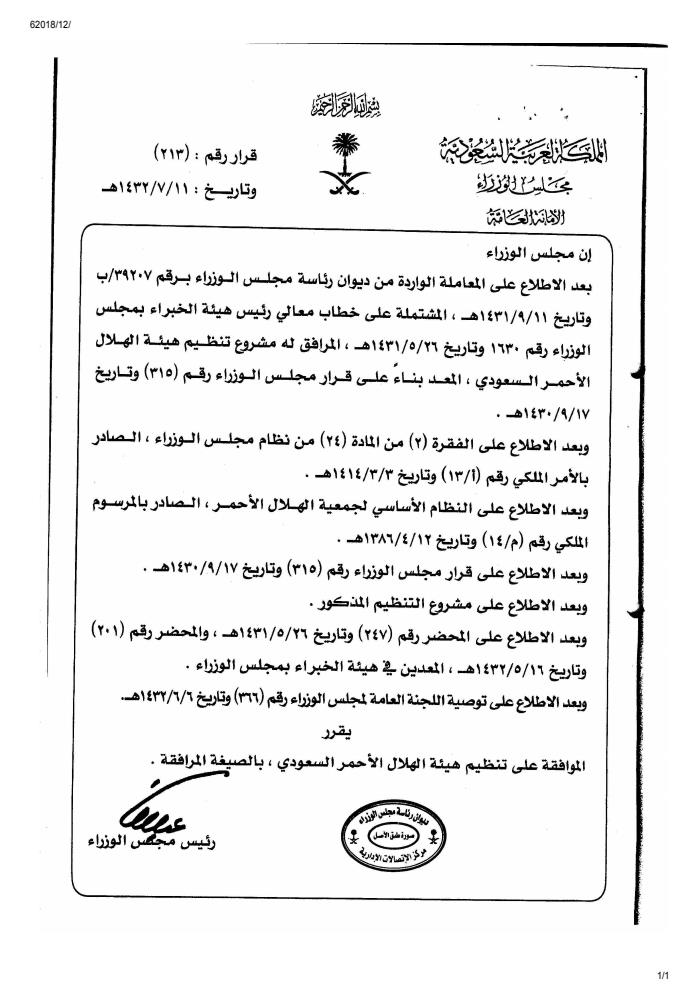 62018/12/
بسم الله الرحمن الرحيم
المملكة العربية السعودية
مجلس الوزراء
الأمانة العامة
قرار رقم : (٢١٣)
وتاريخ : ١٤٣٢/٧/١١هـ
إن مجلس الوزراء
بعد الاطلاع على المعاملة الواردة من ديوان رئاسة مجلس الوزراء برقم ٣٩٢٠٧/ب
وتاريخ ١٤٣١/٩/١١هـ ، المشتملة على خطاب معالي رئيس هيئة الخبراء بمجلس
الوزراء رقم ١٦٣٠ وتاريخ ١٤٣١/٥/٢٦هـ ، المرافق له مشروع تنظيم هيئة الهلال
الأحمر السعودي ، المعد بناءً على قرار مجلس الوزراء رقم (٣١٥) وتاريخ
١٤٣٠/٩/١٧هـ .
وبعد الاطلاع على الفقرة (٢) من المادة (٢٤) من نظام مجلس الوزراء ، الصادر
بالأمر الملكي رقم (أ/١٣) وتاريخ ١٤١٤/٣/٣هـ .
وبعد الاطلاع على النظام الأساسي لجمعية الهلال الأحمر ، الصادر بالمرسوم
الملكي رقم (م/١٤) وتاريخ ١٣٨٦/٤/١٢هـ .
وبعد الاطلاع على قرار مجلس الوزراء رقم (٣١٥) وتاريخ ١٤٣٠/٩/١٧هـ .
وبعد الاطلاع على مشروع التنظيم المذكور .
وبعد الاطلاع على المحضر رقم (٢٤٧) وتاريخ ١٤٣١/٥/٢٦هـ ، والمحضر رقم (٢٠١)
وتاريخ ١٤٣٢/٥/١٦هـ ، المعدين في هيئة الخبراء بمجلس الوزراء .
وبعد الاطلاع على توصية اللجنة العامة لمجلس الوزراء رقم (٣٦٦) وتاريخ ١٤٣٢/٦/٦هـ.
يقرر
الموافقة على تنظيم هيئة الهلال الأحمر السعودي ، بالصيغة المرافقة .
رئيس مجلس الوزراء
ديوان رئاسة مجلس الوزراء
صورة طبق الأصل
مركز الإتصالات الإدارية
1/1